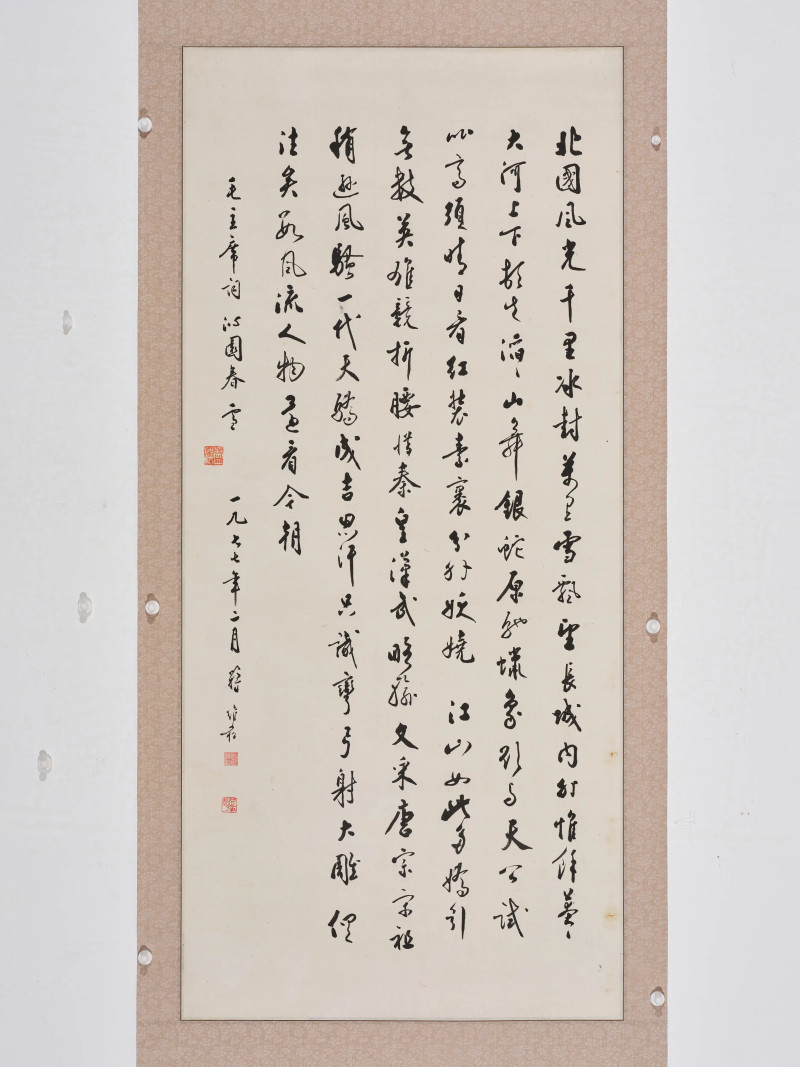 北國風光千里冰封萬里雪飄望長城內外惟餘莽〻
大河上下頓失滔〻山舞銀蛇原馳蠟象欲與天公試
比高須晴日看紅裝素裹分外妖嬈 江山如此多嬌引
無數英雄競折腰惜秦皇漢武略輸文采唐宗宋祖
稍遜風騷一代天驕成吉思汗只識彎弓射大雕 俱
往矣數風流人物還看今朝
毛主席詞 沁園春 雪 一九六七年二月